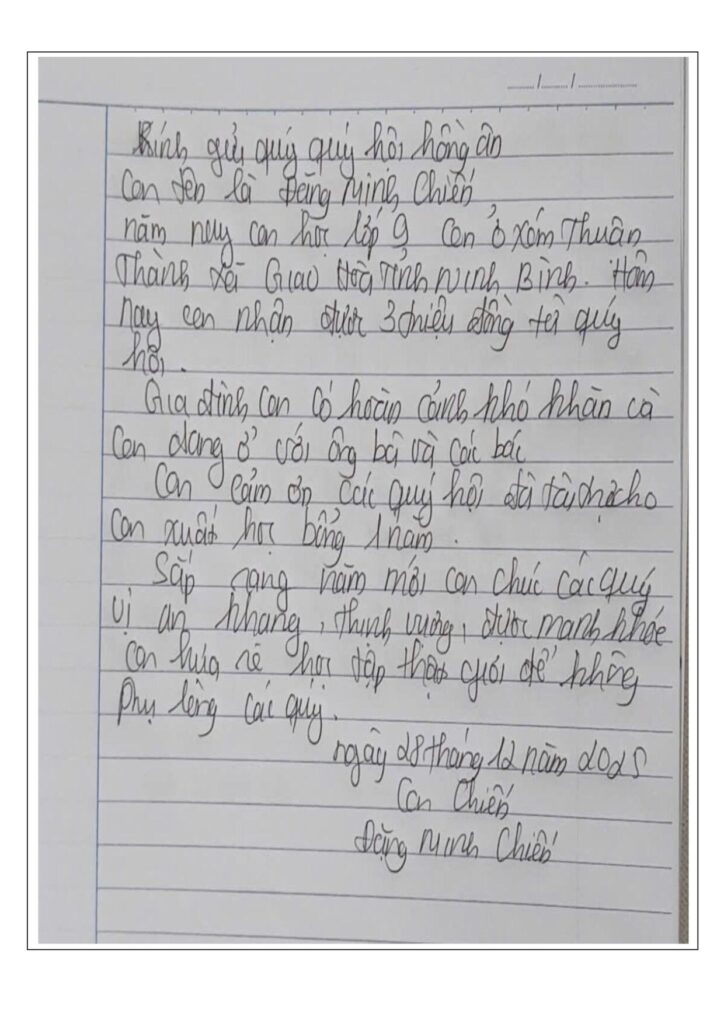 Kính gửi quý quý hội hồng ân
Con tên là Đặng Minh Chiến
năm nay con học lớp 9 Con ở xóm Thuân
Thành xã Giao Hoà Tỉnh Ninh Bình. Hôm
nay con nhận được 3 triệu đồng từ quý
hội.
Gia đình con có hoàn cảnh khó khăn cà
Con đang ở với ông bà và các bác
Con cảm ơn các quý hội đã tài chợ cho
con xuất học bổng 1 năm.
Sắp rạng năm mới con chúc các quý
vị an khang, thịnh vượng, được mạnh khỏe
con hứa sẽ học tập thật giỏi để không
phụ lòng các quý.
ngày 28 tháng 12 năm 2025
Con Chiến
Đặng Minh Chiến